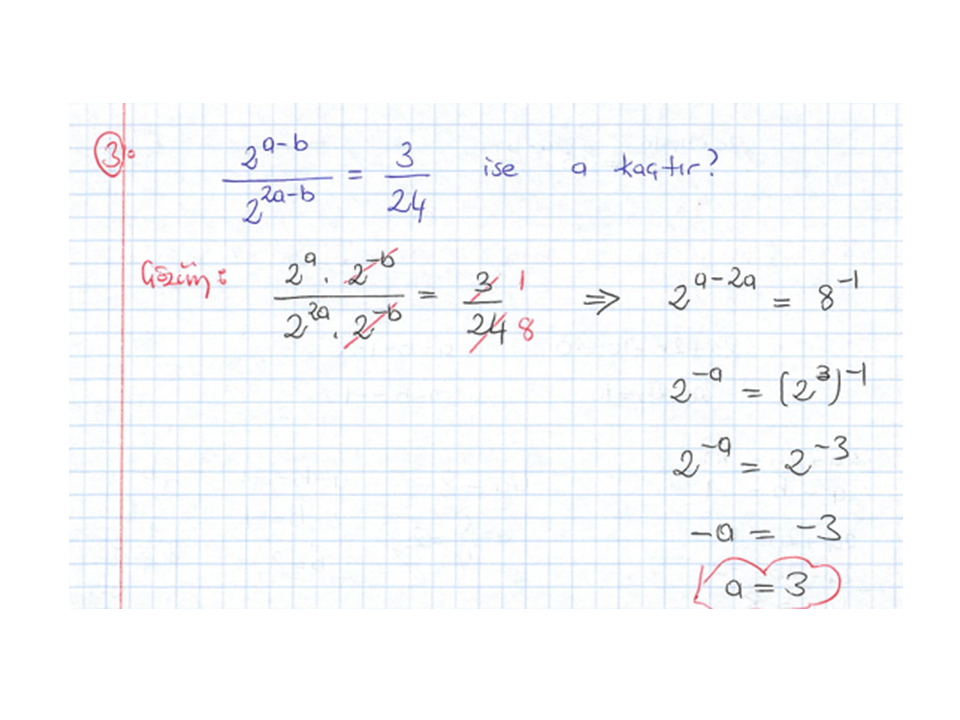 3. 2^(a-b) / 2^(2a-b) = 3/24 ise a kaçtır?
Çözüm: 2^a . 2^-b / 2^2a . 2^-b = 3/24 1/8 ⇒ 2^(a-2a) = 8^-1
2^-a = (2^3)^-1
2^-a = 2^-3
-a = -3
a = 3